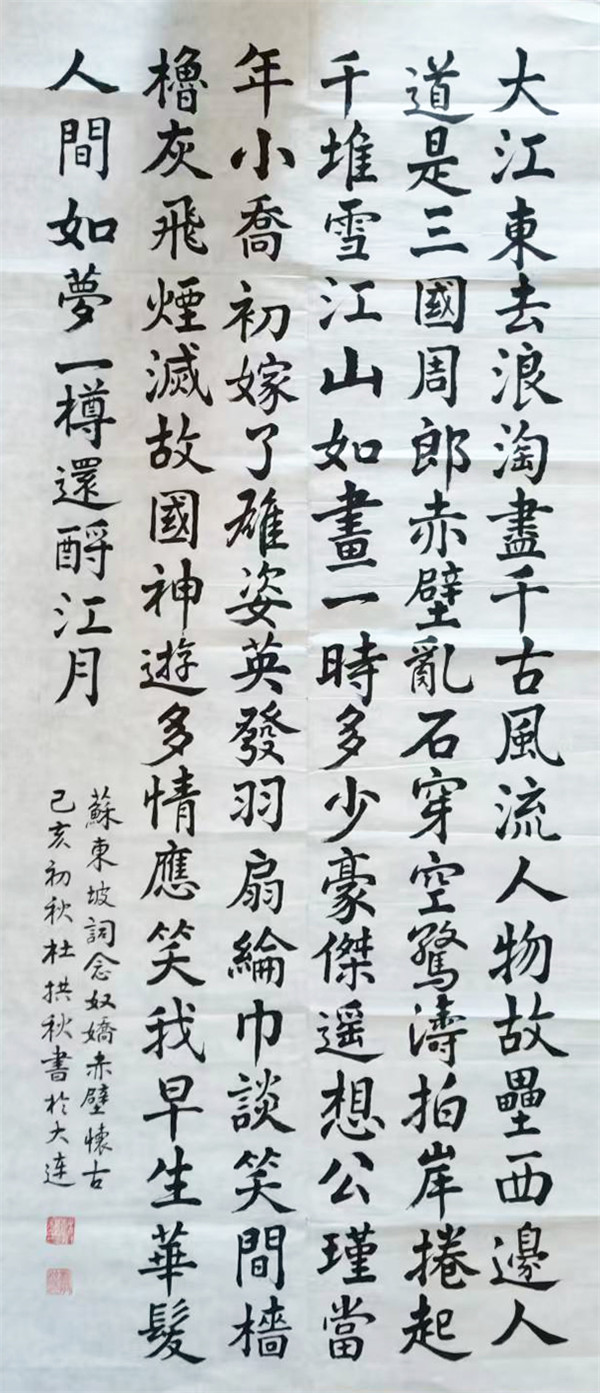 大江東去浪淘盡千古風流人物故壘西邊人
道是三國周郎赤壁亂石穿空驚濤拍岸捲起
千堆雪江山如畫一時多少豪傑遥想公瑾當
年小喬初嫁了雄姿英發羽扇綸巾談笑間檣
櫓灰飛煙滅故國神遊多情應笑我早生華髮
人間如夢一樽還酹江月
蘇東坡詞念奴嬌赤壁懷古
己亥初秋杜拱秋書於大连